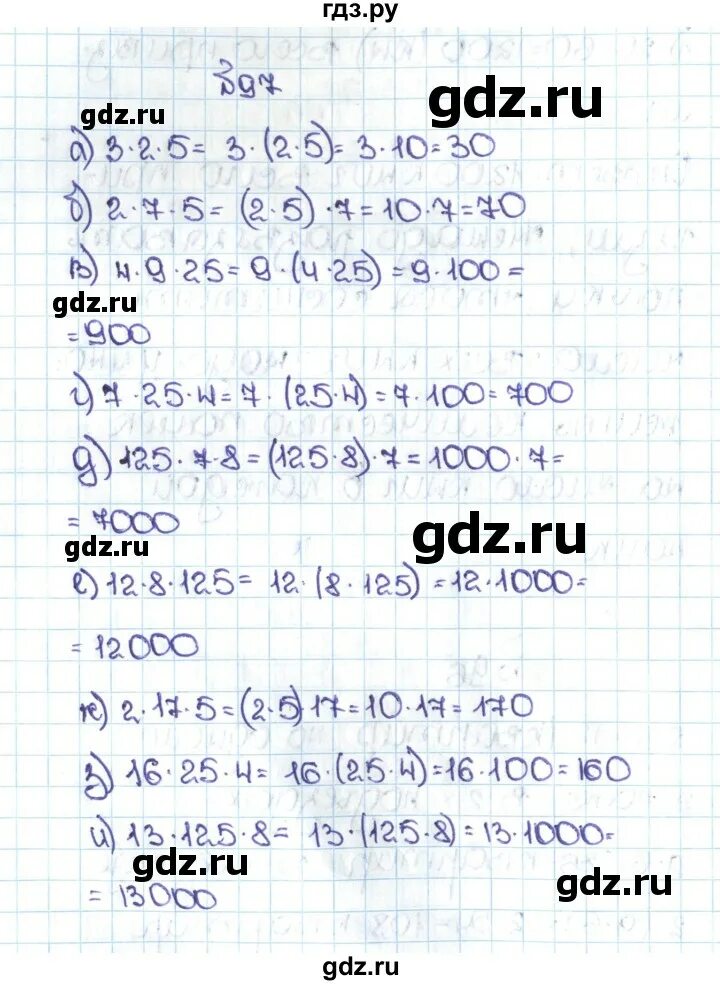 гдз.ру
№97
gdz.ru
gdz.ru
а) 3·2·5= 3·(2·5)= 3·10=30
б) 2·7·5= (2·5)·7=10·7=70
в) 4·9·25= 9·(4·25)=9·100=
gdz.ru
=900
г) 7·25·4=7·(25·4)=7·100=700
д) 125·7·8=(125·8)·7=1000·7=
=7000
gdz.ru
gdz.ru
е) 12·8·125= 12·(8·125)=12·1000=
=12000
ж) 2·17·5=(2·5)17=10·17=170
з) 16·25·4= 16·(25·4)=16·100=160
и) 13·125·8= 13·(125·8)=13·1000=
gdz.ru
gdz.ru
=13000
gdz.ru